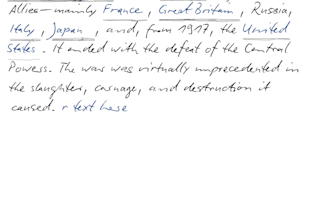 Allies—mainly France, Great Britain, Russia,
Italy, Japan, and, from 1917, the United
States. It ended with the defeat of the Central
Powess. The war was virtually unprecedented in
the slaughter, carnage, and destruction it
caused. r text here